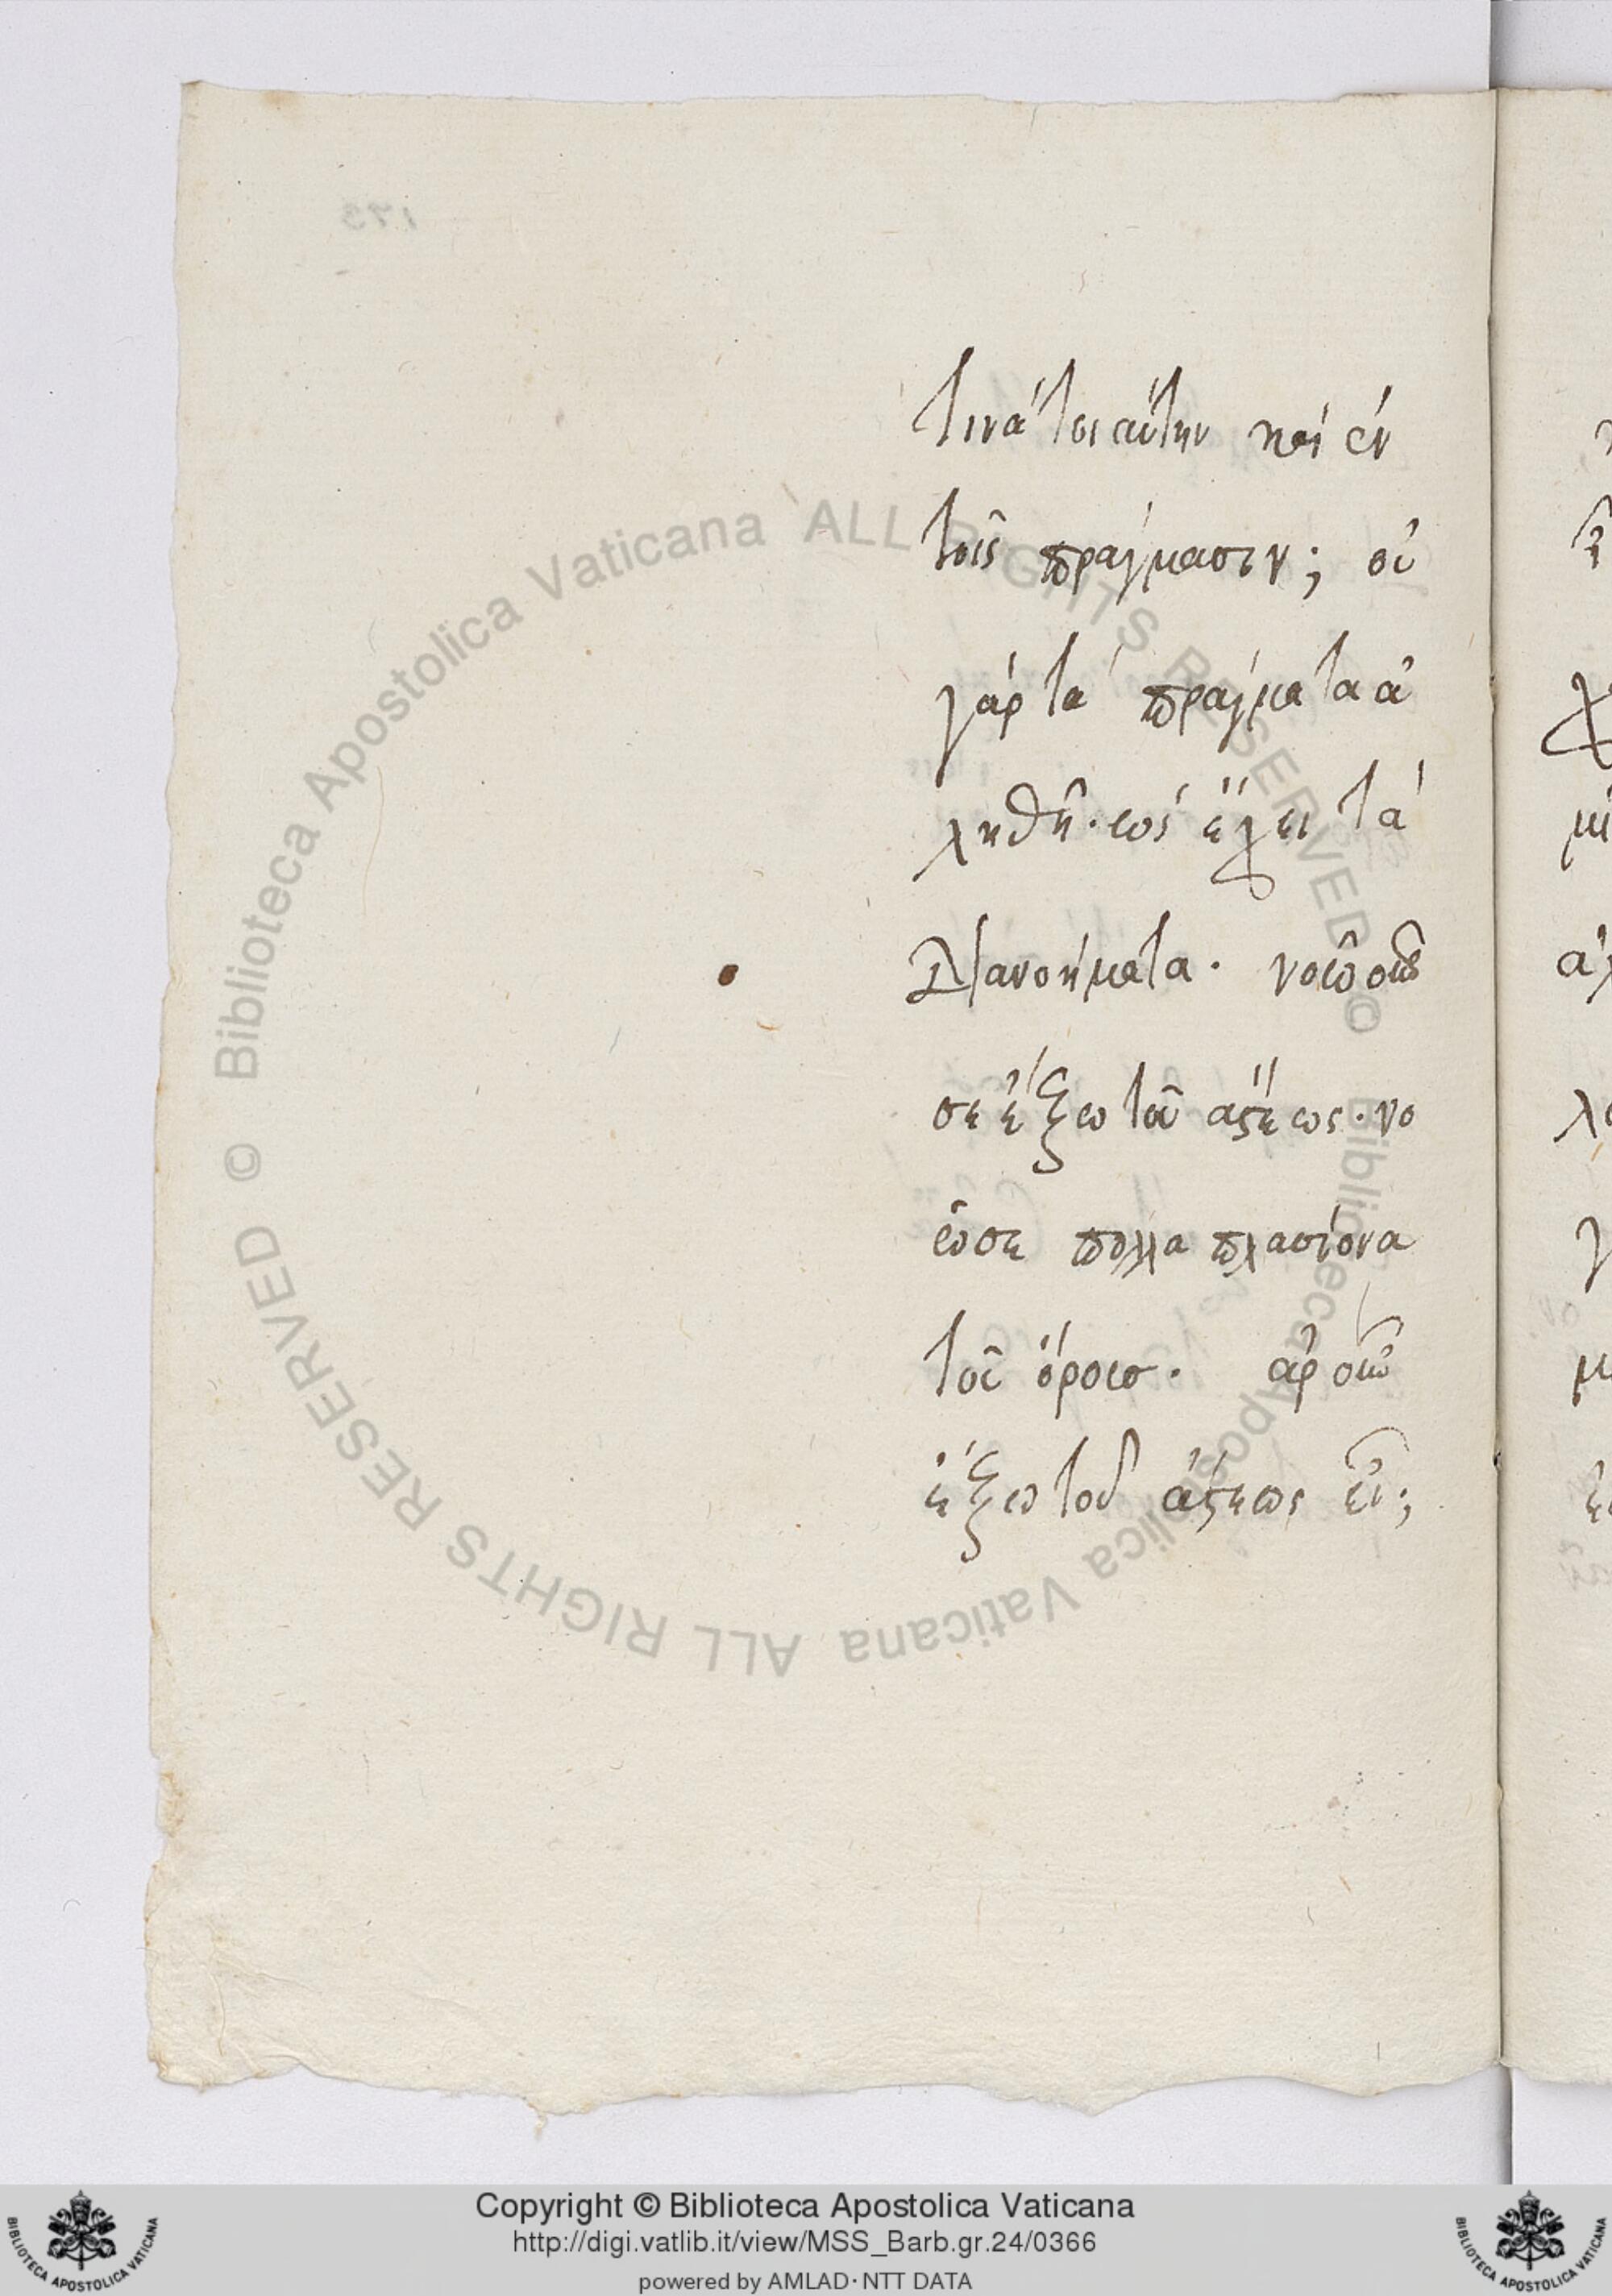 τινὰ τοιαύτην καὶ ἐν
τοῖς πράγμασιν; οὐ
γὰρ τὰ πράγματα ἀ
ληθῆ· ὡς ἔχει τὰ
διανοήματα. νοῶ
σε ἔξω τοῦ ἄστεως· νο
ῶσε πολλα πλασίονα
τοῦ ὄρους. ἆρ
ἔξω τοῦ ἄστεως
173
© Biblioteca Apostolica Vaticana ALL RIGHTS RESERVED © Biblioteca Apostolica Vaticana ALL RIGHTS RESERVED
Copyright © Biblioteca Apostolica Vaticana
http://digi.vatlib.it/view/MSS_Barb.gr.24/0366
powered by AMLAD·NTT DATA
BIBLIOTECA APOSTOLICA VATICANA
BIBLIOTECA APOSTOLICA VATICANA